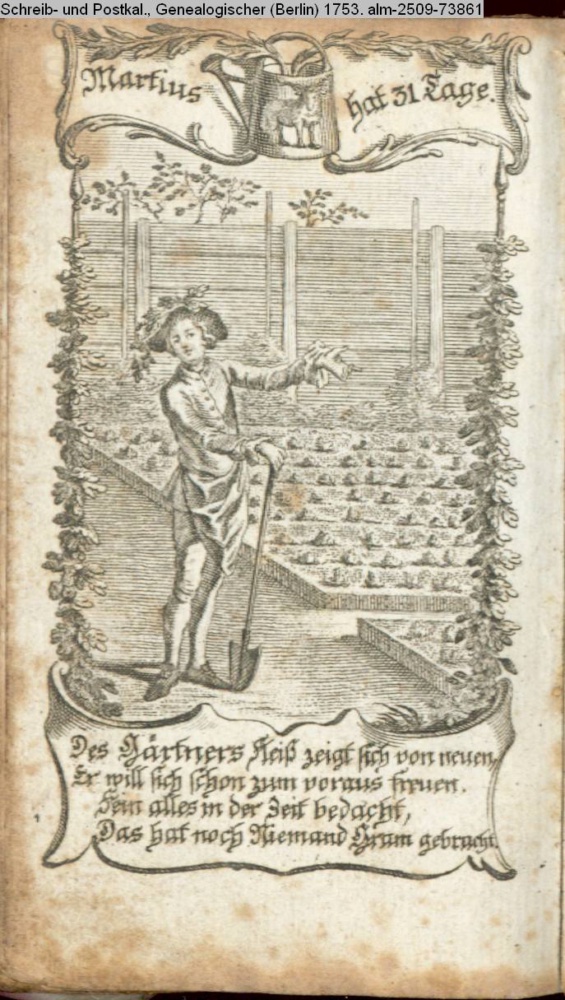 Schreib- und Postkal., Genealogischer (Berlin) 1753. alm-2509-73861
Martius
hat 31 Tage.
Des Gärtners Fleiß zeigt sich von neuen,
Er will sich schon zum voraus freuen.
Fein alles in der Zeit bedacht,
Das hat noch Niemand Gram gebracht.